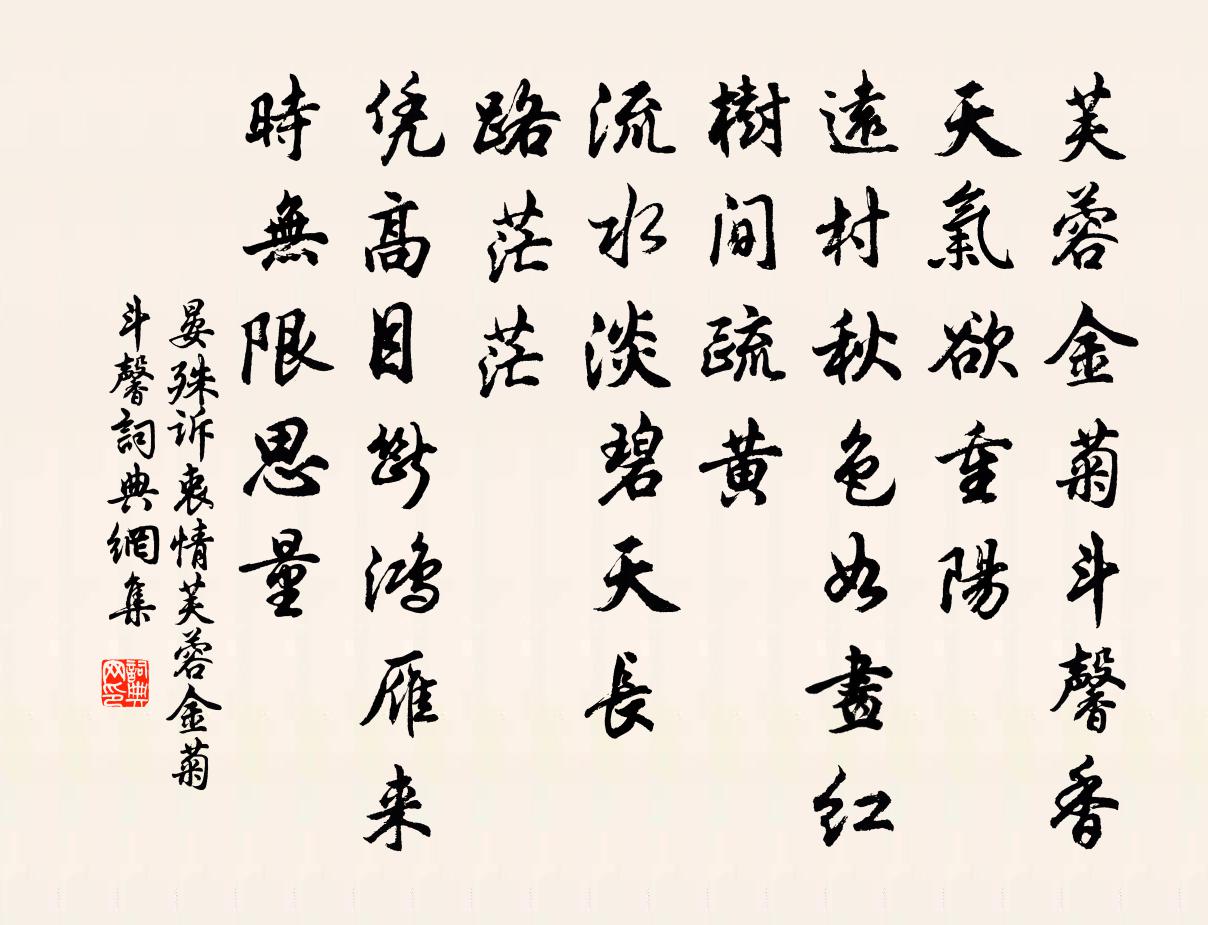 芙蓉金菊斗馨香
天氣欲重陽
遠村秋色如畫红
樹间疏黄
流水淡碧天長
路茫茫
凭高目断鸿雁来
時無限思量
晏殊诉衷情芙蓉金菊
斗馨詞典網集
詞典网印